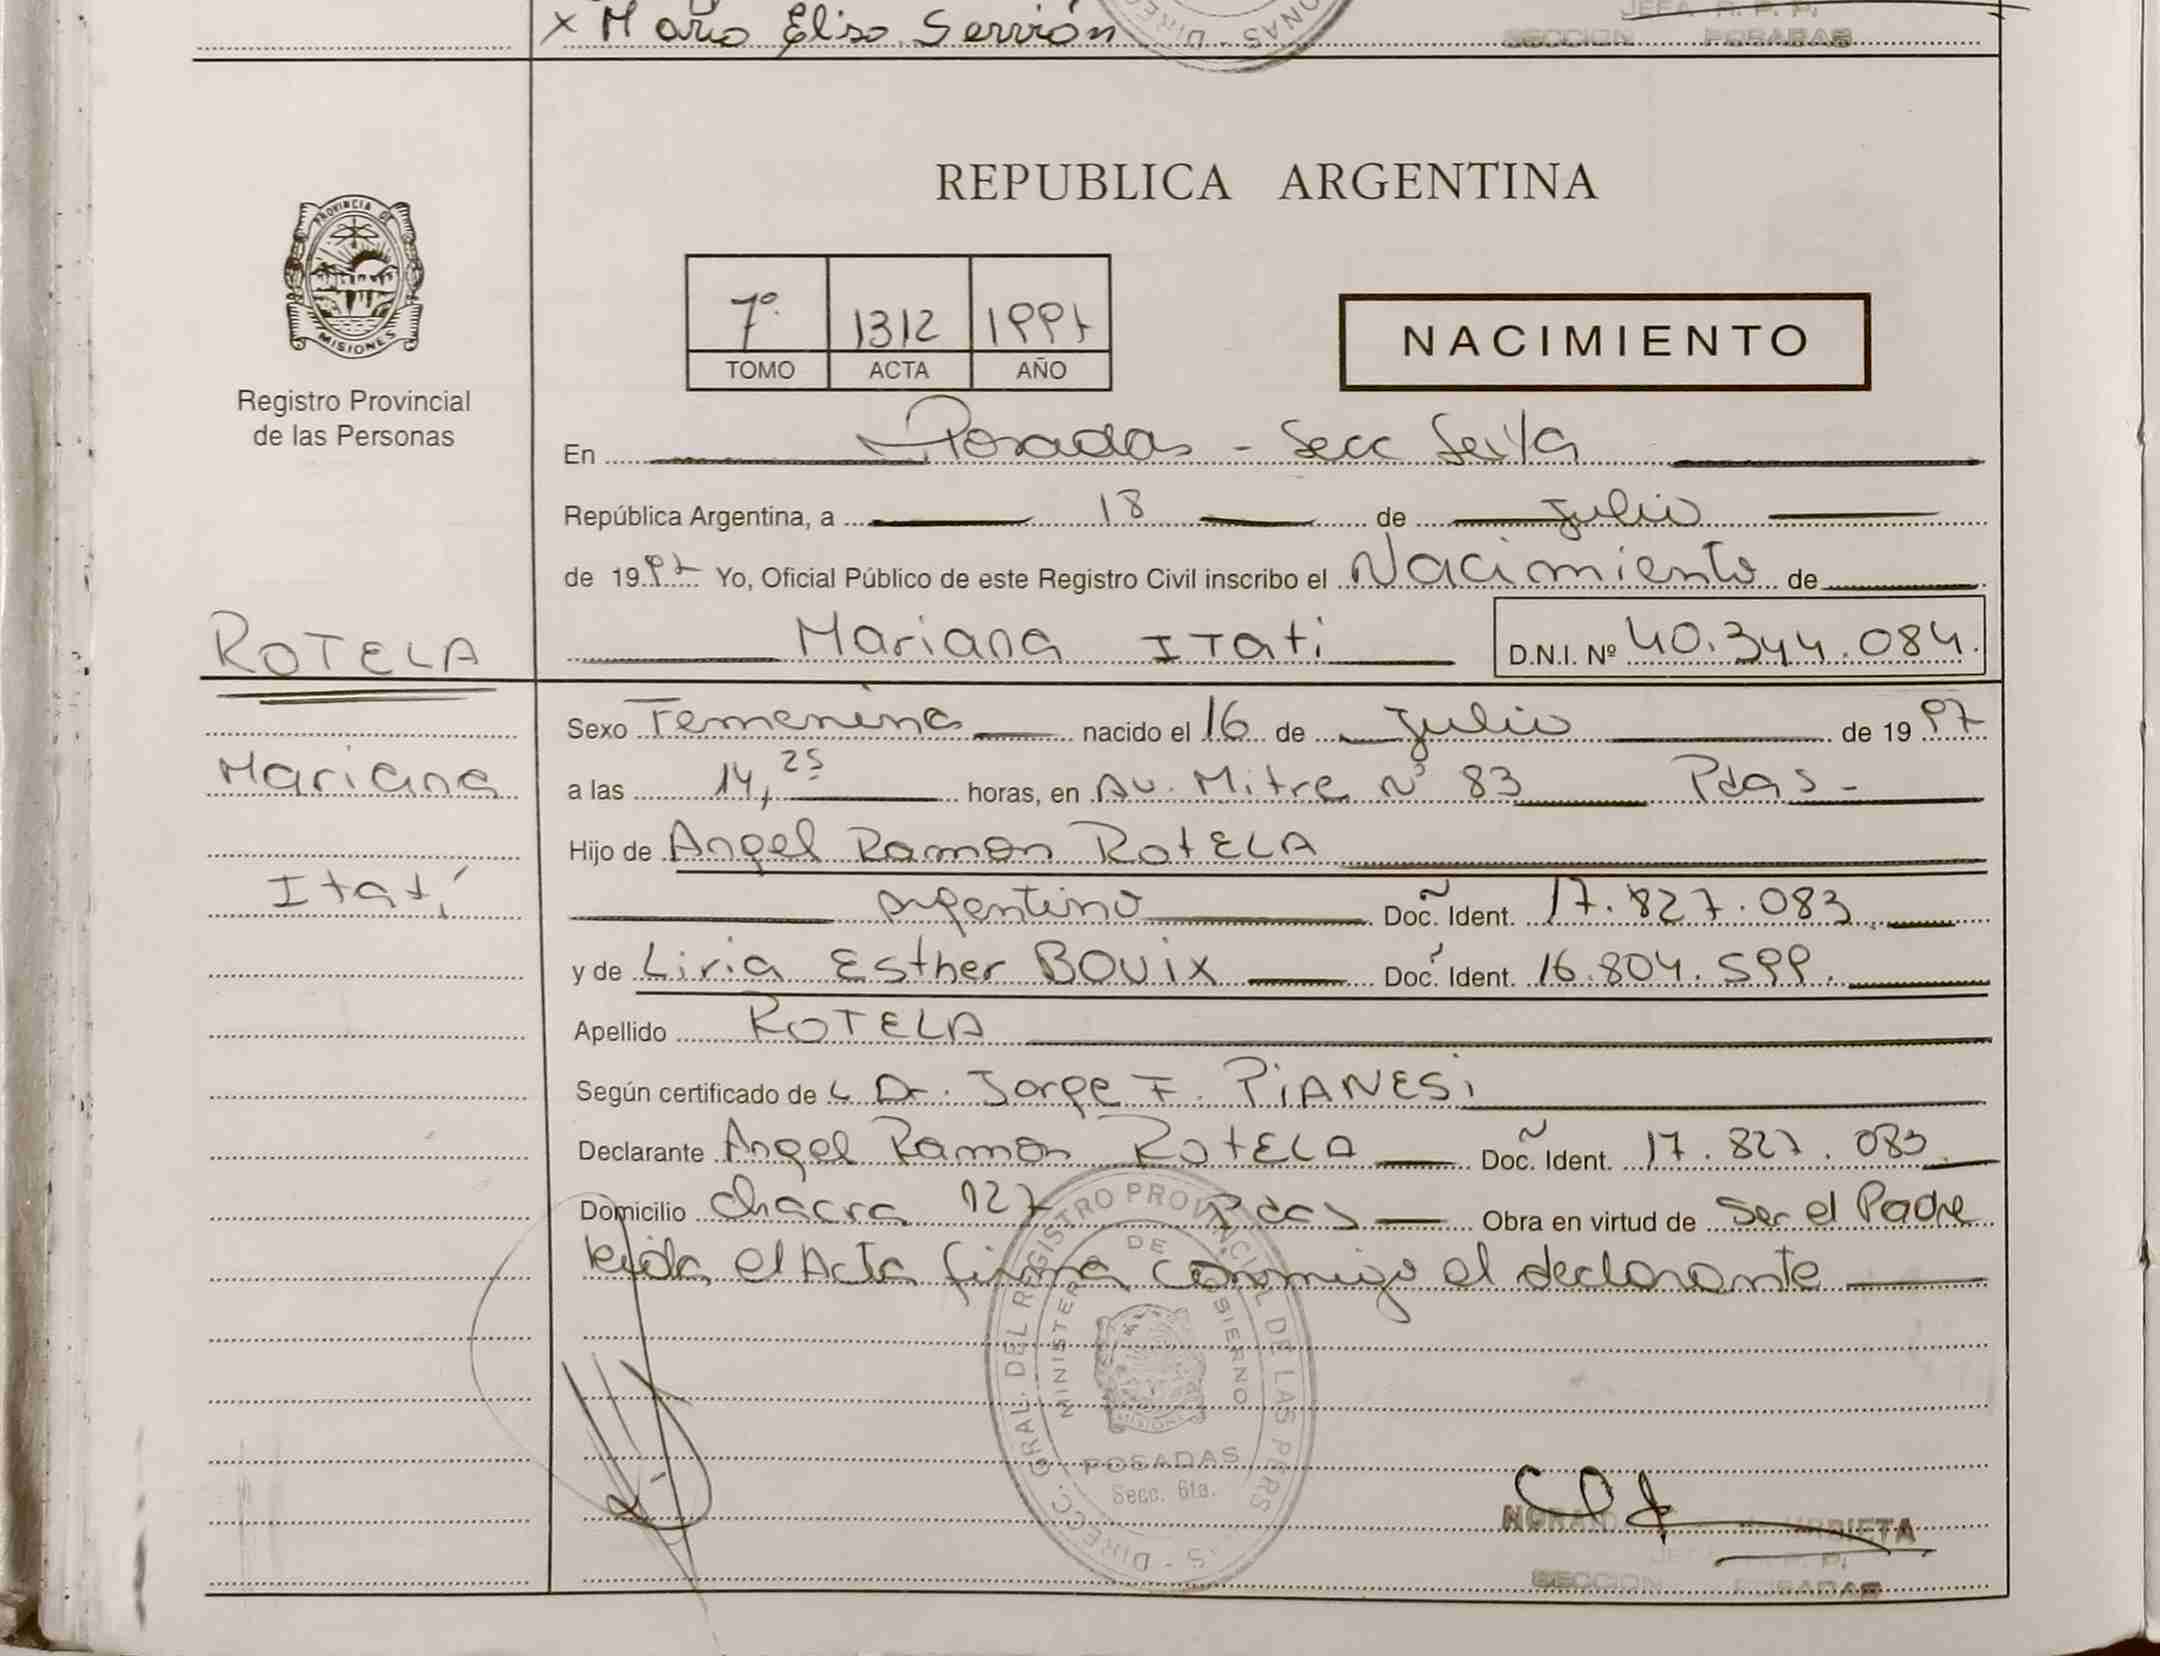 x Mario Eliso Servión
JEFA R. P. P.
SECCION POSADAS
PROVINCIA DE
MISIONES
Registro Provincial
de las Personas
REPUBLICA ARGENTINA
7º 1312 1997
TOMO ACTA AÑO
NACIMIENTO
En Posadas - Secc Sexta
República Argentina, a 18 de Julio
de 1997 Yo, Oficial Público de este Registro Civil inscribo el Nacimiento de
ROTELA
Mariana Itati D.N.I. Nº 40.344.084.
Sexo Femenina nacido el 16 de Julio de 1997
Mariana
a las 14,25 horas, en Av. Mitre Nº 83 Pdas -
Hijo de Angel Ramon ROTELA
Itatí
argentino Doc. Ident. 17.827.083
y de Liria Esther BOUIX Doc. Ident. 16.804.599.
Apellido ROTELA
Según certificado de Dr. Jorge F. PIANESi
Declarante Angel Ramon ROTELA Doc. Ident. 17.827.083
Domicilio Chacra 127 Pdas Obra en virtud de Ser el Padre
leida el Acta firma conmigo el declarante
DIRECC. GRAL. DEL REGISTRO PROVINCIAL DE LAS PERS
MINISTER DE GOBIERNO
MISIONES
POSADAS
Secc. 6ta.
NORA URRIETA
SECCION POSADAS